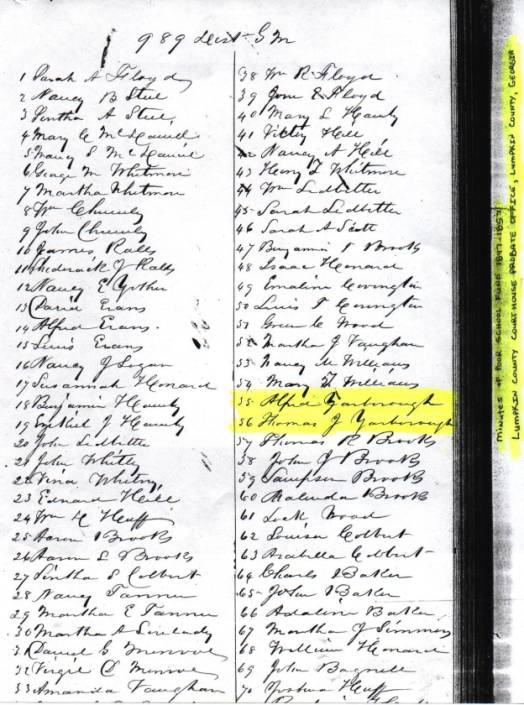 989 Dist G M
1 Sarah A Floyd
2 Nancy B Steel
3 Sintha A Steel
4 Mary C McDaniel
5 Nancy S McDaniel
6 George M Whitmore
7 Martha Whitmore
8 Wm Chumly
9 John Chumly
10 James Ralls
11 Shedrack J Ralls
12 Nancy E
13 David Evans
14 Alfred Evans
15 Lewis Evans
16 Nancy J Logan
17 Susannah Howard
18 Benjamin
19 J
20 John Ledbetter
21 John Whitly
22 Whitny
23 Edward Hill
24 Wm H Huff
25 Aaron Brooks
26 Aaron L Brooks
27 Sintha S Colbert
28 Nancy Tanner
29 Martha E Tanner
30 Martha A
31 David C Monroe
32 Virgil D Monroe
33 Amanda Vaughan
38 Wm R Floyd
39 Floyd
40 Mary L
41 Hill
42 Nancy A Hill
43 Henry T Whitmore
44 Wm Ledbetter
45 Sarah Ledbetter
46 Sarah A Scott
47 Benjamin Brooks
48 Isaac Howard
49 Emaline Covington
50 Lewis T Covington
51 Green C Wood
52 Martha J Vaughan
53 Nancy M Williams
54 Mary T Williams
55 Alfred Yarborough
56 Thomas J Yarborough
57 Thomas R Brooks
58 John J Brooks
59 Sampson Brooks
60 Malinda Brooks
61 Lock Wood
62 Louisa Colbert
63 Arabella Colbert
64 Charles Baker
65 John Baker
66 Adaline Baker
67 Martha J Simmons
68 William Howard
69 John Bagwell
70 Joshua Huff
MINUTES OF POOR SCHOOL FUND 1847-1857
LUMPKIN COUNTY COURTHOUSE PROBATE OFFICE, LUMPKIN COUNTY, GEORGIA